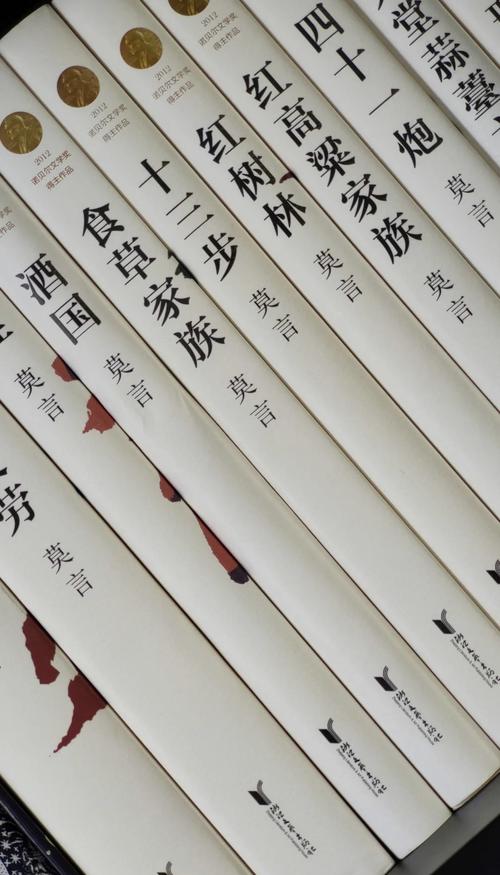 劳
莫言
学奖
莫言
2012
诺贝尔文学奖
得主作品
酒国
莫言
2012
诺贝尔文学奖
得主作品
食草家族
莫言
浙江文艺出版社
2012
诺贝尔文学奖
得主作品
十三步
莫言
浙江文艺出版社
2012
诺贝尔文学奖
得主作品
红树林
莫言
浙江文艺出版社
红高粱家族
莫言
浙江文艺出版社
四十一炮
莫言
堂蒜薹